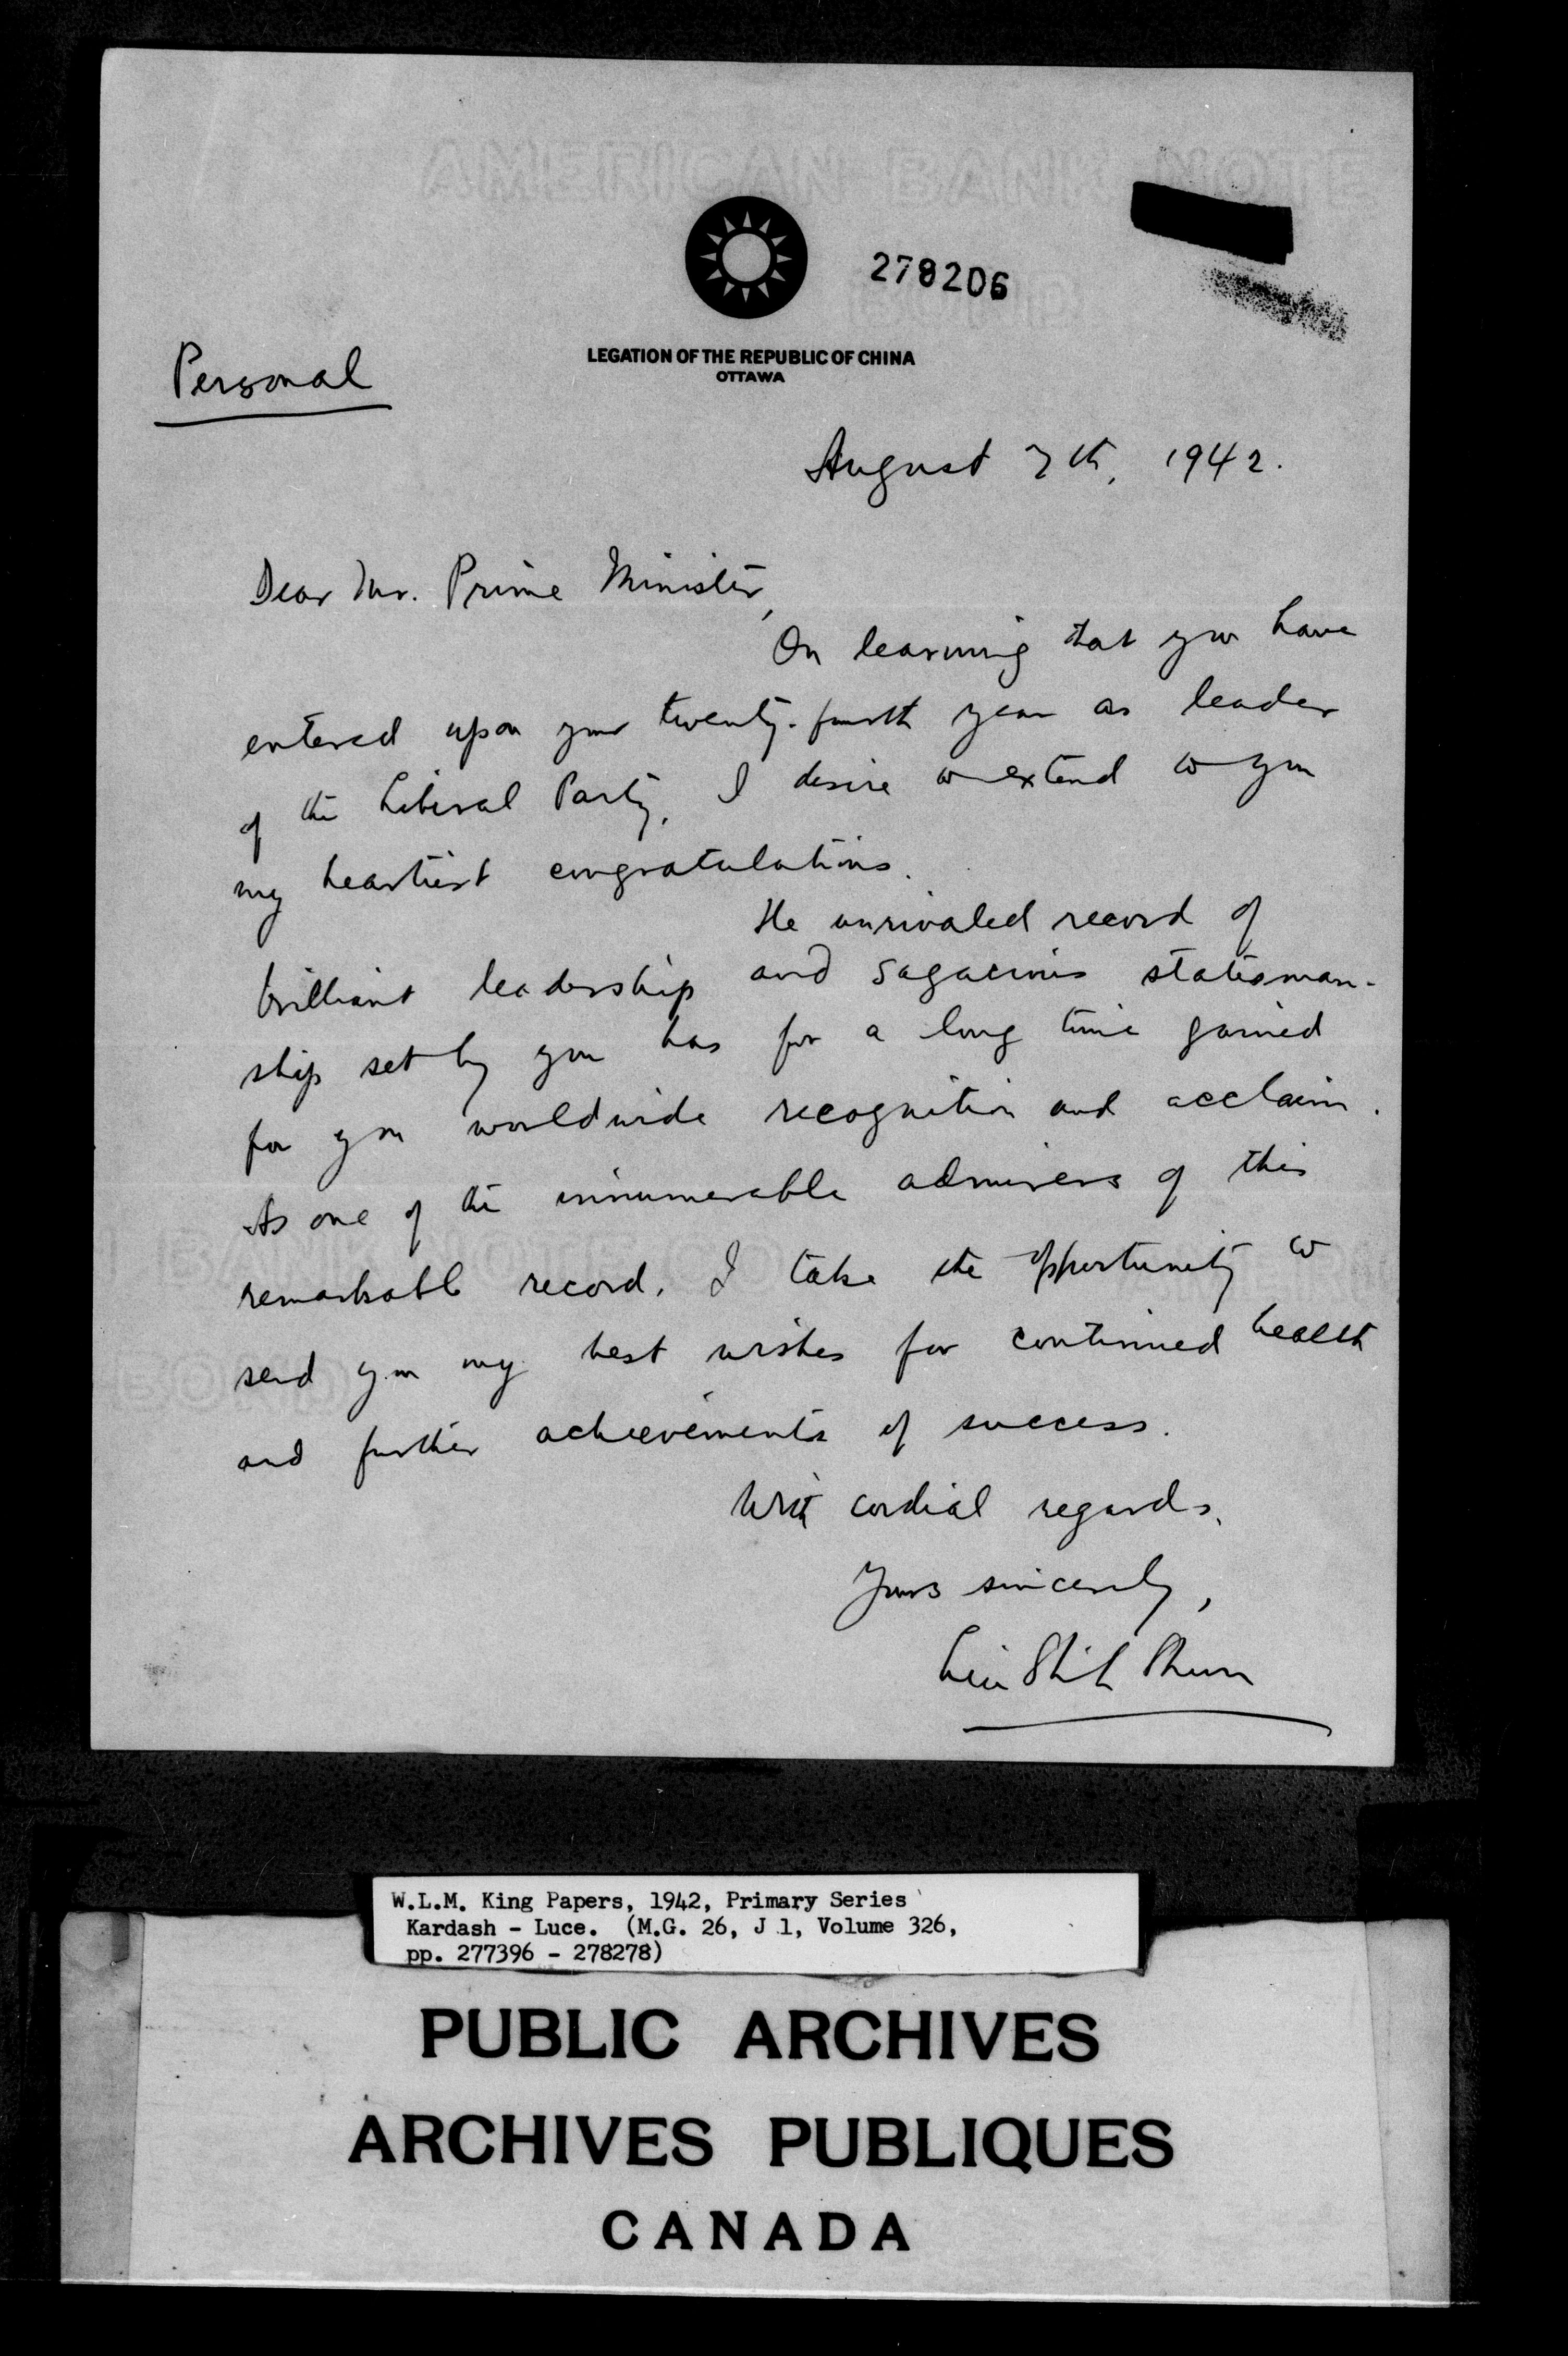 AMERICAN BANK NOTE
BOND
278206
LEGATION OF THE REPUBLIC OF CHINA
OTTAWA
Personal
August 7th, 1942.
Dear Mr. Prime Minister,
On learning that you have
entered upon your twenty-fourth year as leader
of the Liberal Party, I desire to extend to you
my heartiest congratulations.
The unrivaled record of
brilliant leadership and sagacious statesman-
ship set by you has for a long time gained
for you worldwide recognition and acclaim.
As one of the innumerable admirers of this
remarkable record, I take the opportunity to
send you my best wishes for continued health
and further achievements of success.
With cordial regards,
Yours sincerely,
Liu Shih Shun
W.L.M. King Papers, 1942, Primary Series
Kardash - Luce. (M.G. 26, J 1, Volume 326,
pp. 277396 - 278278)
PUBLIC ARCHIVES
ARCHIVES PUBLIQUES
CANADA